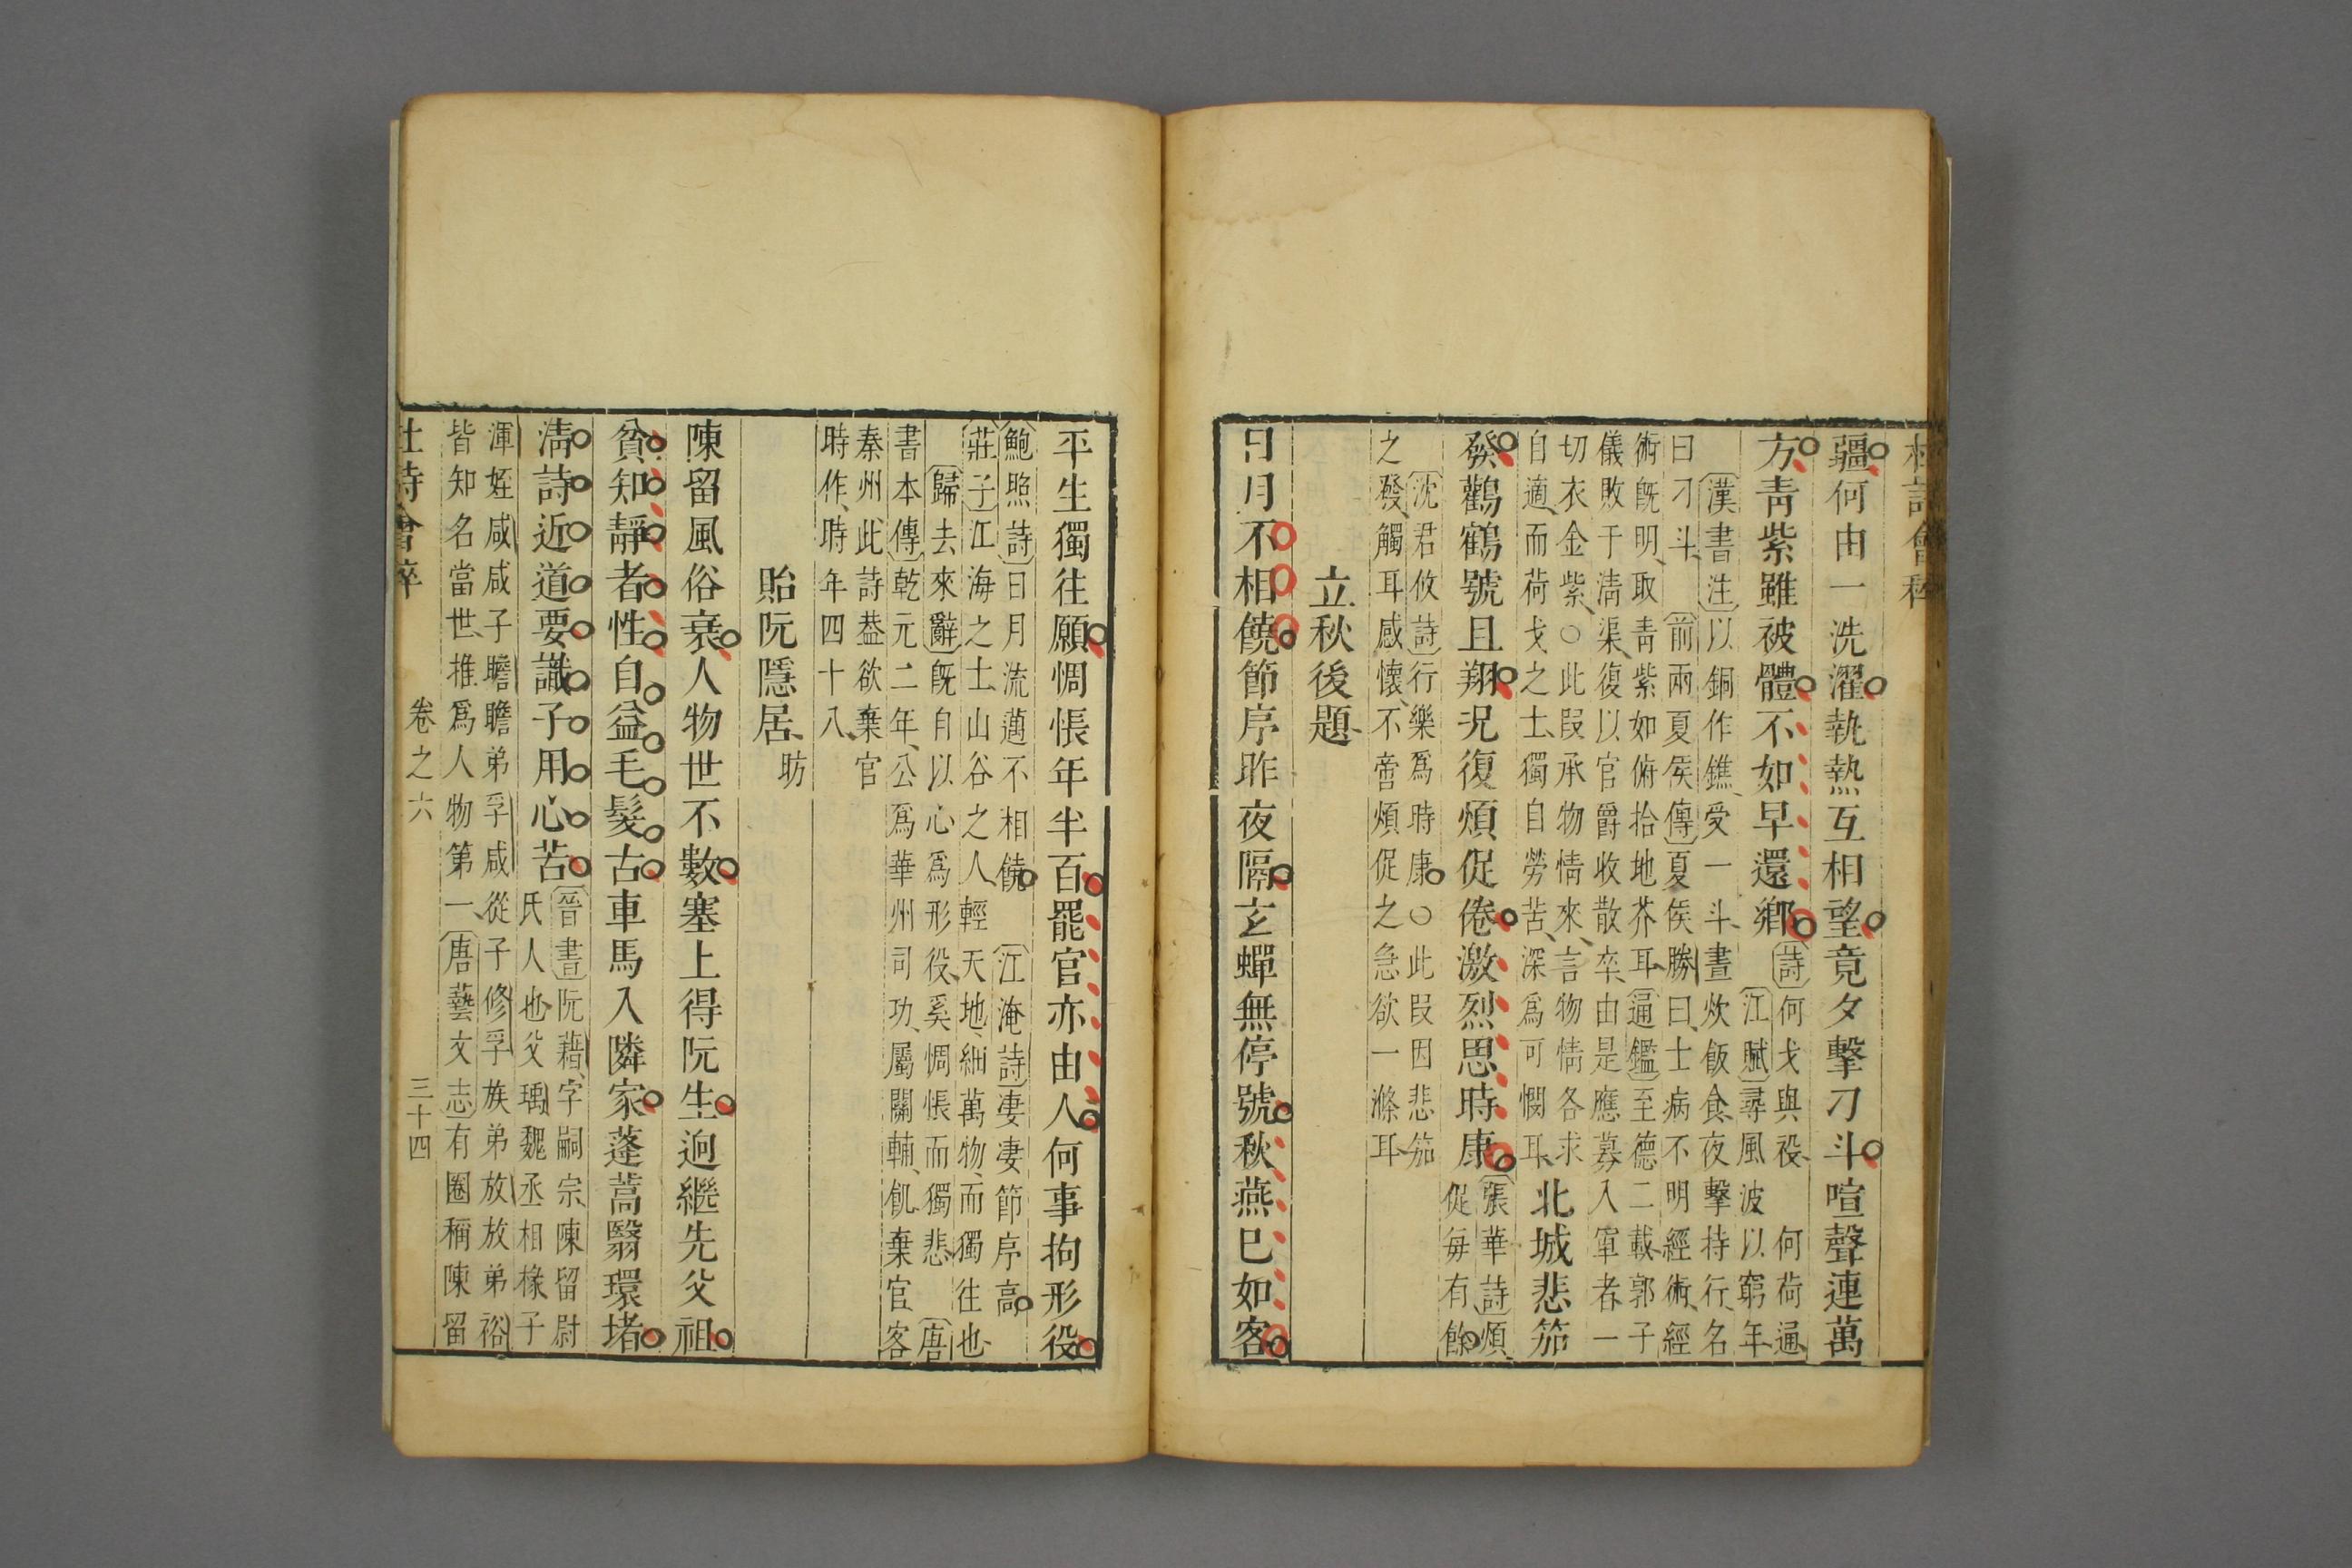 杜詩會稡
疆何由一洗濯執熱互相望竟夕擊刁斗喧聲連萬
方靑紫雖被體不如早還鄉
詩何戈與祋 何荷通
江賦尋風波以窮年
漢書注以銅作鐎受一斗晝炊飯食夜擊持行名
曰刁斗 前兩夏侯傳夏侯勝曰士病不明經術經
術旣明取靑紫如俯拾地芥耳通鑑至德二載郭子
儀敗于淸渠復以官爵收散卒由是應募入軍者一
切衣金紫○此叚承物情來言物情各求
自適而荷戈之士獨自勞苦深爲可憫耳
北城悲笳
發鸛鶴號且翔況復煩促倦激烈思時康
張華詩煩
促每有餘
沈君攸詩行樂爲時康○此叚因悲笳
之發觸耳感懷不啻煩促之急欲一滌耳
立秋後題
日月不相饒節序昨夜隔玄蟬無停號秋燕已如客
平生獨往願惆悵年半百罷官亦由人何事拘形役
鮑照詩日月流邁不相饒 江淹詩淒淒節序高
莊子江海之士山谷之人輕天地細萬物而獨往也
歸去來辭旣自以心爲形役奚惆悵而獨悲 唐
書本傳乾元二年公爲華州司功屬關輔飢棄官客
秦州此詩葢欲棄官
時作時年四十八
貽阮隱居昉
陳留風俗衰人物世不數塞上得阮生迥繼先父祖
貧知靜者性自益毛髮古車馬入隣家蓬蒿翳環堵
淸詩近道要識子用心苦
晉書阮籍字嗣宗陳留尉
氏人也父瑀魏丞相椽子
渾姪咸咸子瞻瞻弟孚咸從子修孚族弟放放弟裕
皆知名當世推爲人物第一唐藝文志有圈稱陳留
杜詩會稡 卷之六 三十四